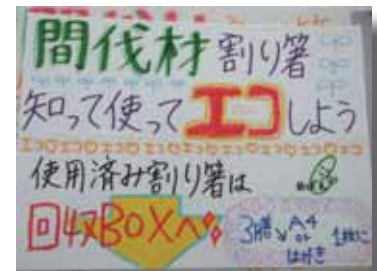 間伐材割り箸
知って使ってエコしよう
使用済み割り箸は
回収BOXへ
3膳 A4 or はがき 1枚に